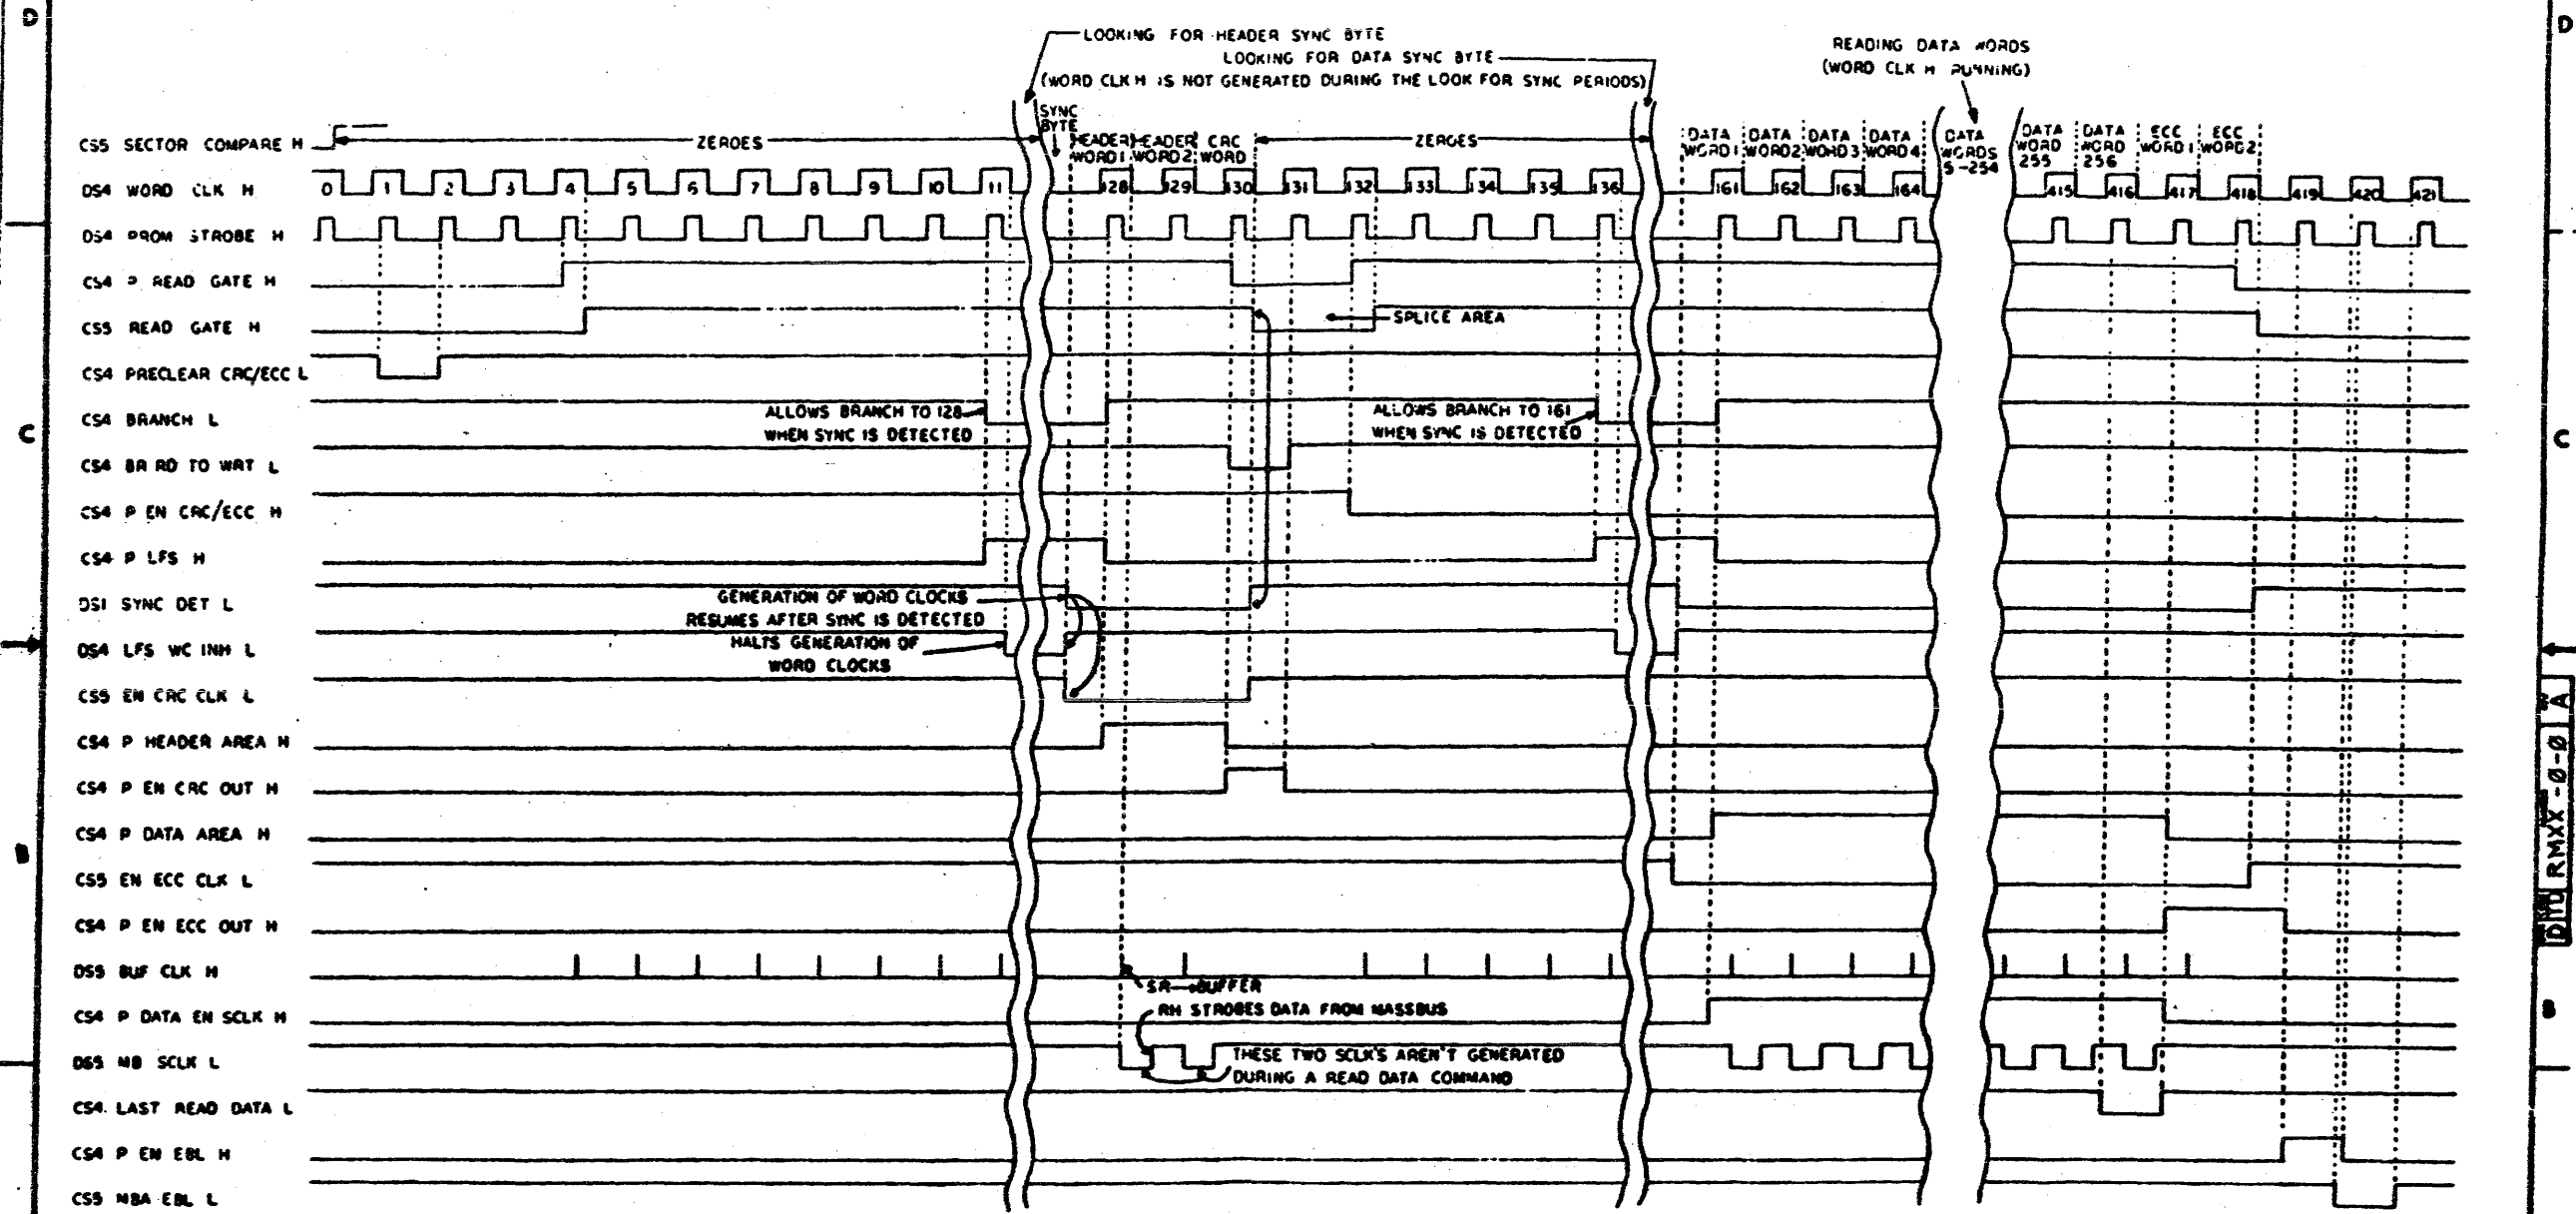 D
D
LOOKING FOR HEADER SYNC BYTE
LOOKING FOR DATA SYNC BYTE
(WORD CLK H IS NOT GENERATED DURING THE LOOK FOR SYNC PERIODS)
READING DATA WORDS
(WORD CLK H RUNNING)
SYNC
BYTE
CS5 SECTOR COMPARE H
ZEROES
HEADER WORD 1
HEADER WORD 2
CRC WORD
ZEROES
DATA WORD 1
DATA WORD 2
DATA WORD 3
DATA WORD 4
DATA WORDS 5-254
DATA WORD 255
DATA WORD 256
ECC WORD 1
ECC WORD 2
DS4 WORD CLK H
0 1 2 3 4 5 6 7 8 9 10 11 128 129 130 131 132 133 134 135 136 161 162 163 164 415 416 417 418 419 420 421
DS4 PROM STROBE H
CS4 P READ GATE H
CS5 READ GATE H
SPLICE AREA
CS4 PRECLEAR CRC/ECC L
CS4 BRANCH L
ALLOWS BRANCH TO 128
WHEN SYNC IS DETECTED
ALLOWS BRANCH TO 161
WHEN SYNC IS DETECTED
C
C
CS4 BR RD TO WRT L
CS4 P EN CRC/ECC H
CS4 P LFS H
DS1 SYNC DET L
GENERATION OF WORD CLOCKS
RESUMES AFTER SYNC IS DETECTED
DS4 LFS WC INH L
HALTS GENERATION OF
WORD CLOCKS
CS5 EN CRC CLK L
CS4 P HEADER AREA H
CS4 P EN CRC OUT H
CS4 P DATA AREA H
B
CS5 EN ECC CLK L
CS4 P EN ECC OUT H
DS5 BUF CLK H
SR→BUFFER
CS4 P DATA EN SCLK H
RH STROBES DATA FROM MASSBUS
B
DS5 MB SCLK L
THESE TWO SCLK'S AREN'T GENERATED
DURING A READ DATA COMMAND
CS4 LAST READ DATA L
CS4 P EN EBL H
CS5 MBA EBL L
D TD RMXX-0-0 A